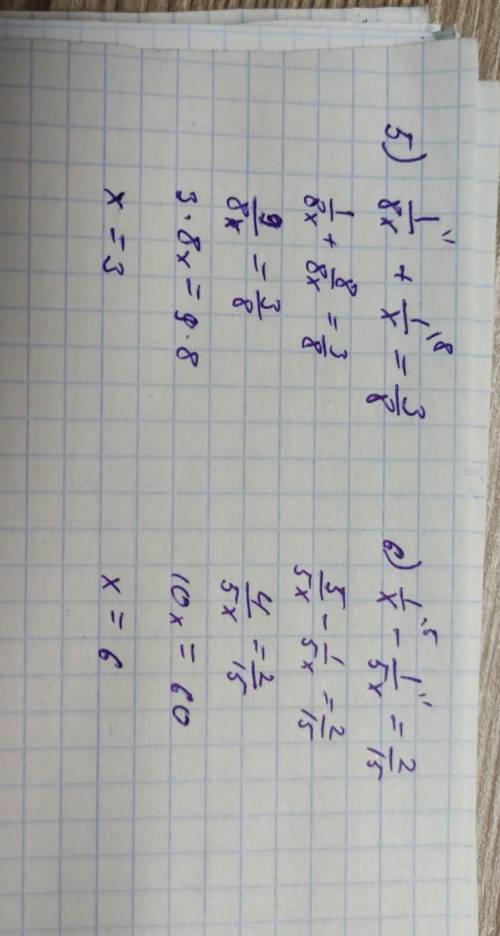 5) 1/8x + 1/x = 3/8
1/8x + 8/8x = 3/8
9/8x = 3/8
3·8x = 9·8
x = 3
6) 1/x − 1/5x = 2/15
5/5x − 1/5x = 2/15
4/5x = 2/15
10x = 60
x = 6